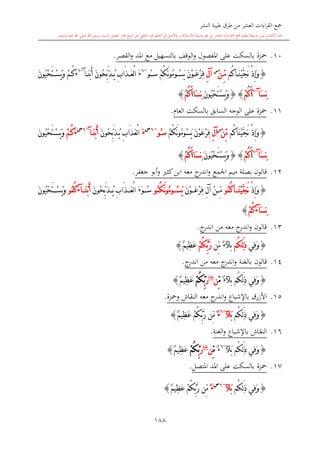 جمع القراءات العشر من طرق طيبة النشر
١٠. حمزة بالسكت على المفصول والوقف بالتسهيل مع المد والقصر.
﴿ وَإِذْ نَجَّيْنَٰكُم مِّنْ ءَالِ فِرْعَوْنَ يَسُومُونَكُمْ سُوٓءَ ٱلْعَذَابِ يُذَبِّحُونَ أَبْنَآءَكُمْ وَيَسْتَحْيُونَ
نِسَآءَكُمْ ﴾ ﴿ وَيَسْتَحْيُونَ نِسَآءَكُمْ ﴾
١١. حمزة على الوجه السابق بالسكت العام.
﴿ وَإِذْ نَجَّيْنَٰكُم مِّنْ ءَالِ فِرْعَوْنَ يَسُومُونَكُمْ سُوٓءَ ٱلْعَذَابِ يُذَبِّحُونَ أَبْنَآءَكُمْ وَيَسْتَحْيُونَ
نِسَآءَكُمْ ﴾ ﴿ وَيَسْتَحْيُونَ نِسَآءَكُمْ ﴾
١٢. قالون بصلة ميم الجمع واندرج معه ابن كثير وأبو جعفر.
﴿ وَإِذْ نَجَّيْنَٰكُمُو مِّنْ ءَالِ فِرْعَوْنَ يَسُومُونَكُمُو سُوٓءَ ٱلْعَذَابِ يُذَبِّحُونَ أَبْنَآءَكُمُو وَيَسْتَحْيُونَ
نِسَآءَكُمْ ﴾
١٣. قالون واندرج معه من اندرج.
﴿ وَفِي ذَٰلِكُم بَلَآءٌ مِّن رَّبِّكُمْ عَظِيمٌ ﴾
١٤. قالون بالغنة واندرج معه من اندرج.
﴿ وَفِي ذَٰلِكُم بَلَآءٌ مِّن رَّبِّكُمْ عَظِيمٌ ﴾
١٥. الأزرق بالإشباع واندرج معه النقاش وحمزة.
﴿ وَفِي ذَٰلِكُم بَلَآءٌ مِّن رَّبِّكُمْ عَظِيمٌ ﴾
١٦. النقاش بالإشباع والغنة.
﴿ وَفِي ذَٰلِكُم بَلَآءٌ مِّن رَّبِّكُمْ عَظِيمٌ ﴾
١٧. حمزة بالسكت على المد المتصل.
﴿ وَفِي ذَٰلِكُم بَلَآءٌ مِّن رَّبِّكُمْ عَظِيمٌ ﴾
١٨٨